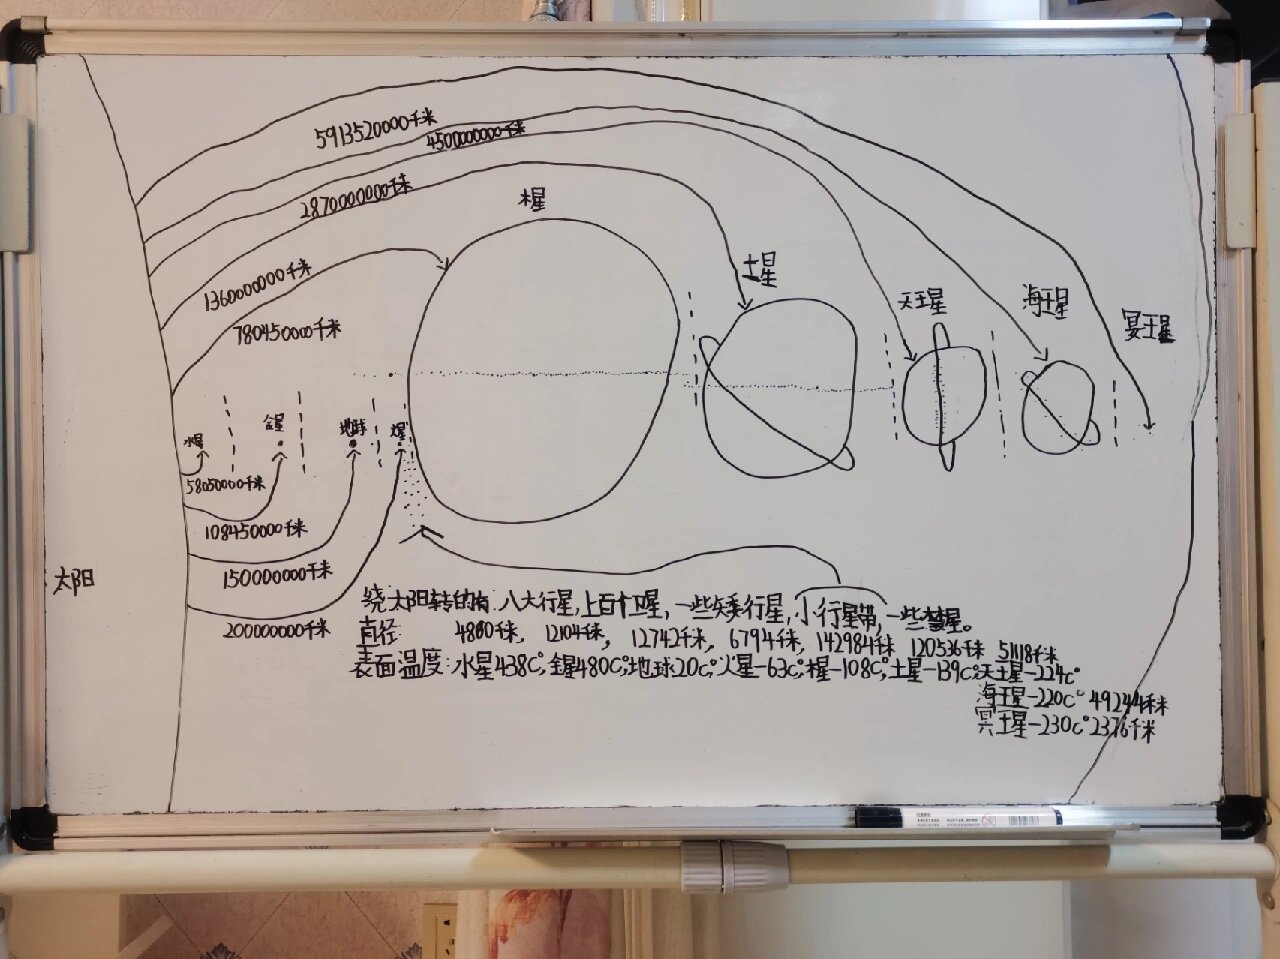 5913520000千米
4500000000千米
2870000000千米
1360000000千米
780450000千米
木星
土星
天王星
海王星
冥王星
水星
金星
地球
火星
58050000千米
108450000千米
150000000千米
200000000千米
太阳
绕太阳转的有:八大行星,上百个卫星,一些矮行星,小行星带,一些彗星。
直径: 4880千米, 12104千米, 12742千米, 6794千米, 142984千米 120536千米 51118千米
表面温度:水星438C°,金星480C°,地球20C°,火星-63C°,木星-108C°,土星-139C°,天王星-224C°
海王星-220C° 49244千米
冥王星-230C° 2376千米